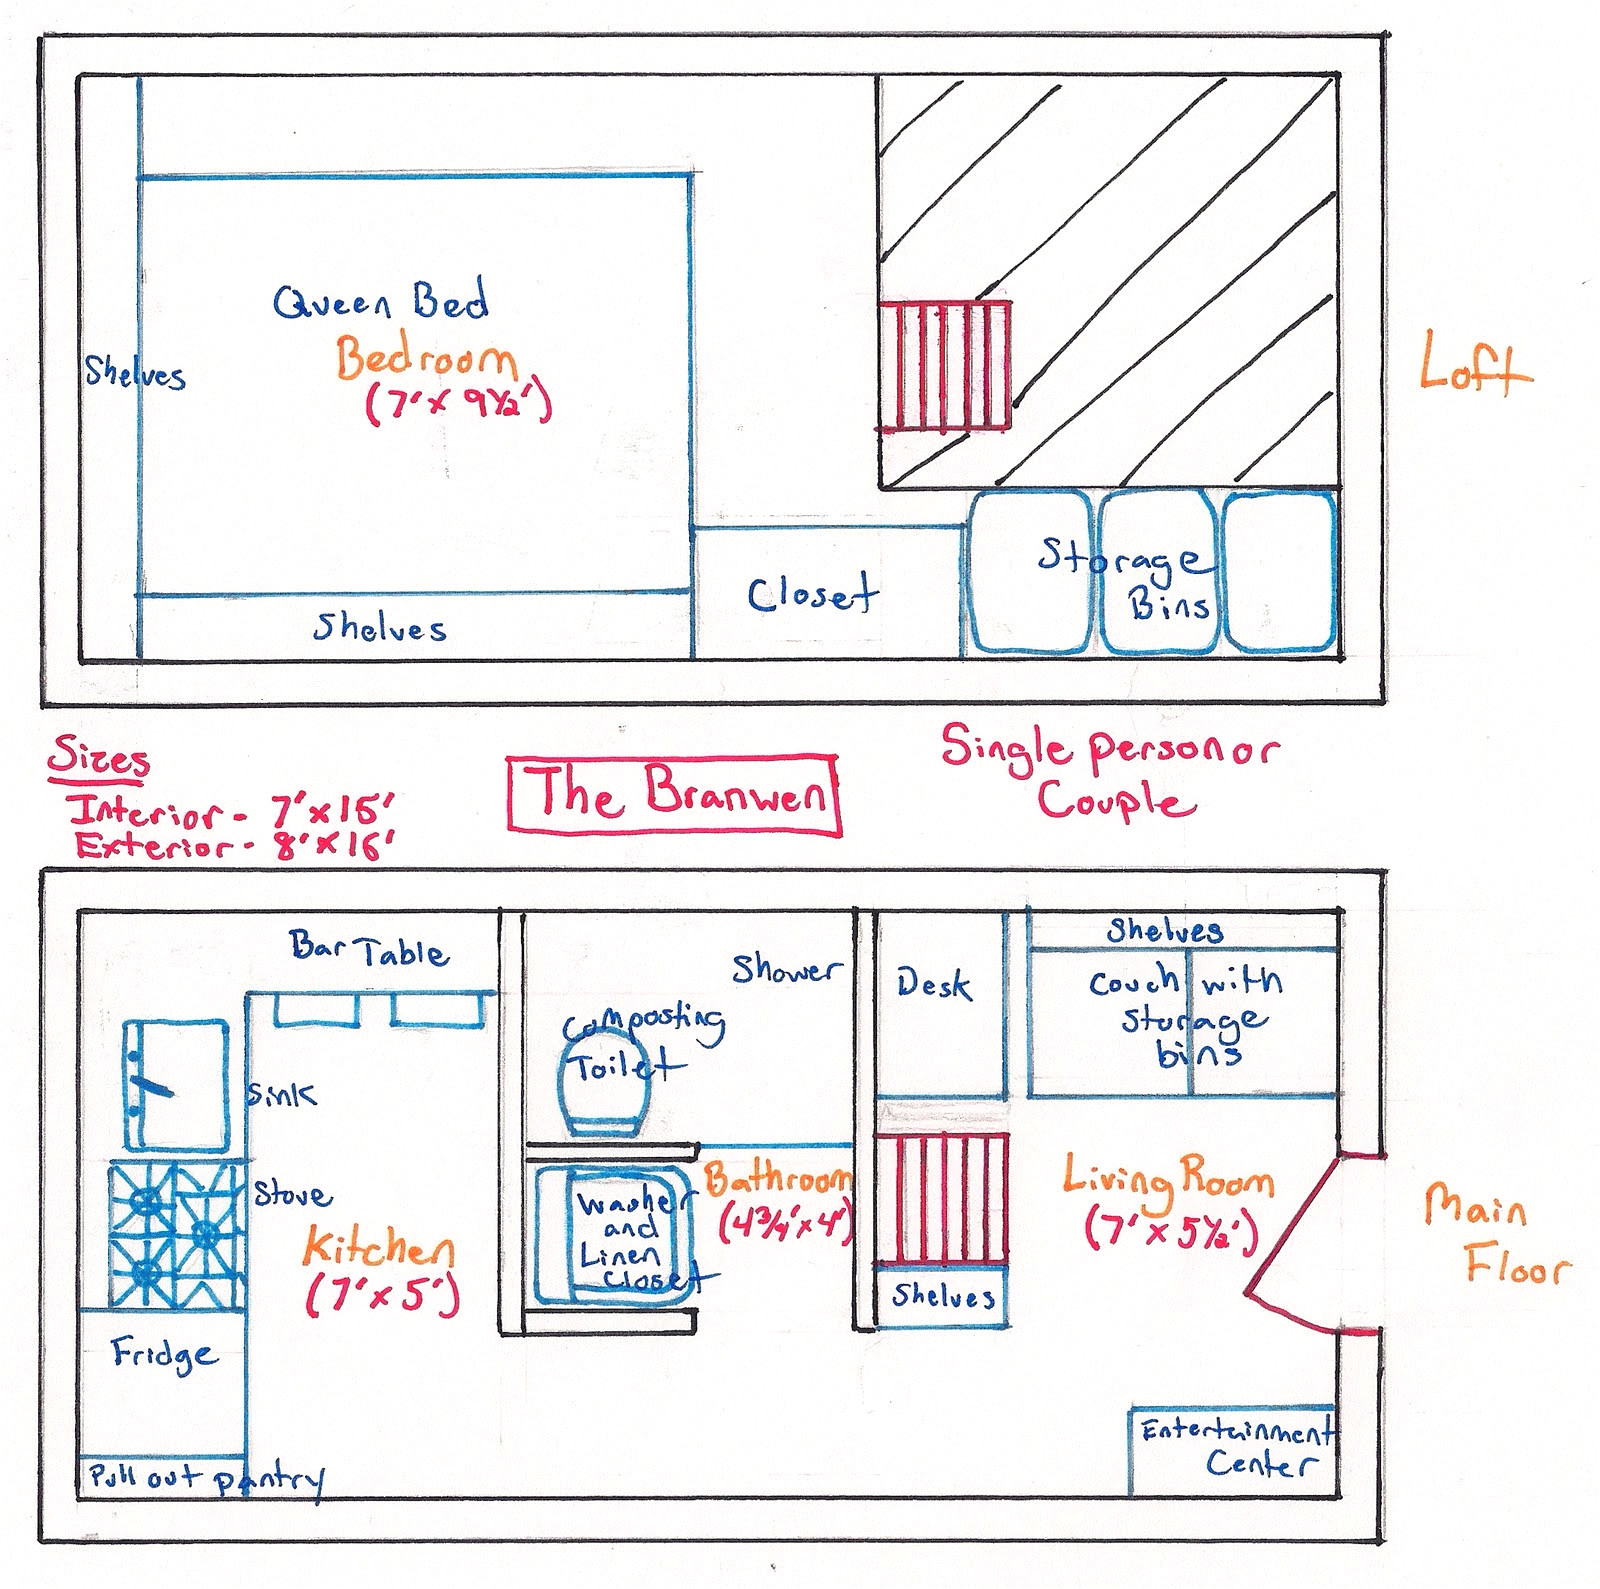 Queen Bed
Bedroom
(7' x 9½')
Shelves
Shelves
Closet
Storage
Bins
Loft
Sizes
Interior - 7' x 15'
Exterior - 8' x 16'
The Branwen
Single person or
Couple
Bar Table
Sink
Stove
Kitchen
(7' x 5')
Fridge
Pull out pantry
Composting
Toilet
Shower
Washer
and
Linen
Closet
Bathroom
(4¾' x 4')
Desk
Shelves
Shelves
Couch with
Storage
bins
Living Room
(7' x 5½')
Entertainment
Center
Main
Floor